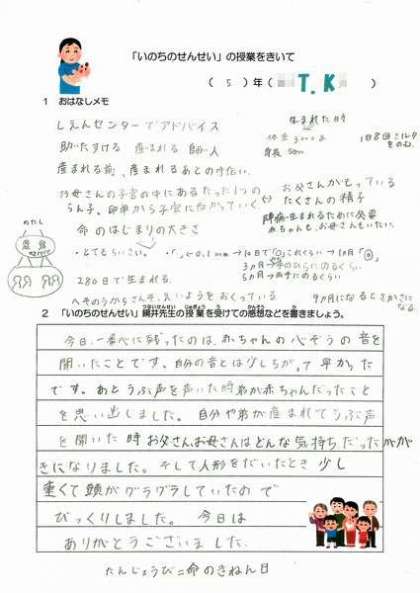 「いのちのせんせい」の授業をきいて
( 5 ) 年 ( T.K )
1 おはなしメモ
しえんセンターでアドバイス
助けたすける 産まれる 師人
産まれる前、産まれるあとの
生まれた時
体重3000g
身長50cm
1日8回ミルクをのむ。
お母さんの子宮の中にあるたった1つの
らん子。卵巣から子宮に
お父さんがもっている
たくさんの精子
陣痛・生まれるために
赤ちゃんも、お母さんもいたい。
命のはじまりの大きさ
・とてもちいさい。
わたし
280日で生まれる。
へそのうからさんそ、えいようをおくっている
9か月になるとさかさになる
2 「いのちのせんせい」綱井先生の授業を受けての感想などを書きましょう。
いのちのせんせい つない せんせい じゅぎょう う かんそう か
今日、一番心に残ったのは、赤ちゃんの心ぞうの音を
聞いたことです。自分の音とは少しちがって早かった
です。あとうぶ声を聞いた時弟が赤ちゃんだったこと
を思い出しました。自分や弟が産まれてうぶ声
を聞いた時お父さん、お母さんはどんな気持ちだったかが
きになりました。そして人形をだいたとき少し
重くて頭がグラグラしていたので
びっくりしました。今日は
ありがとうございました。
たんじょうび=命のきねん日